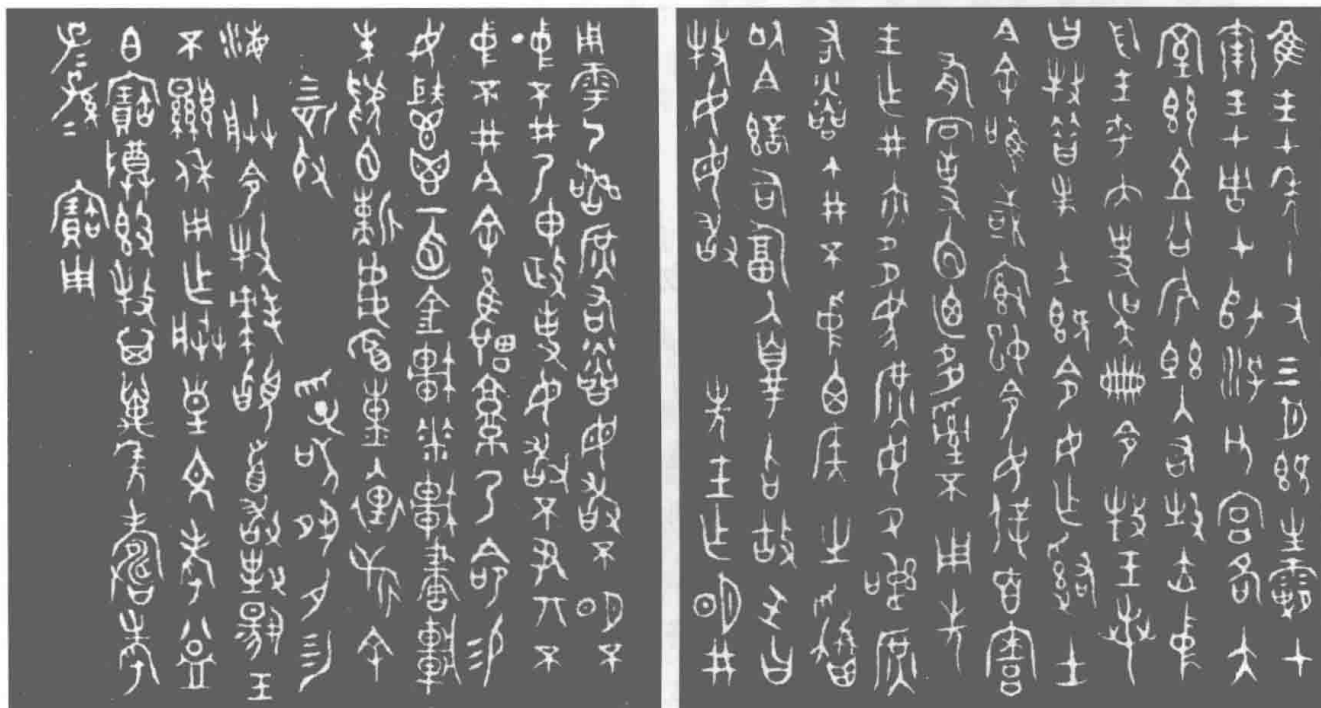 隹王七年十又三月既生霸甲
寅王才周才師汓父宮各大
室即立公族入右牧立中
廷王乎內史吳冊令牧王若
曰牧昔先王既令女乍司土
今余唯或改令女辟百寮
有冋事包迺多亂不用先
王乍井亦多虐庶民氒訊庶
右粦不井不中囟侯之
以今司匐氒辠召故王曰
牧女毋敢先王乍明井
用雩乃訊庶右粦毋敢不明不
中不井乃申政事毋敢不尹丌不
中不井今余隹乃命易
女秬鬯一卣金車賁較畫
朱虢靳虎冟熏裏旂余
三匹取敬夙夕勿
灋朕令牧拜稽首敢對揚王
不顯休用乍朕皇文考益
白寶尊簋牧其萬年壽考
子=孫=寶用